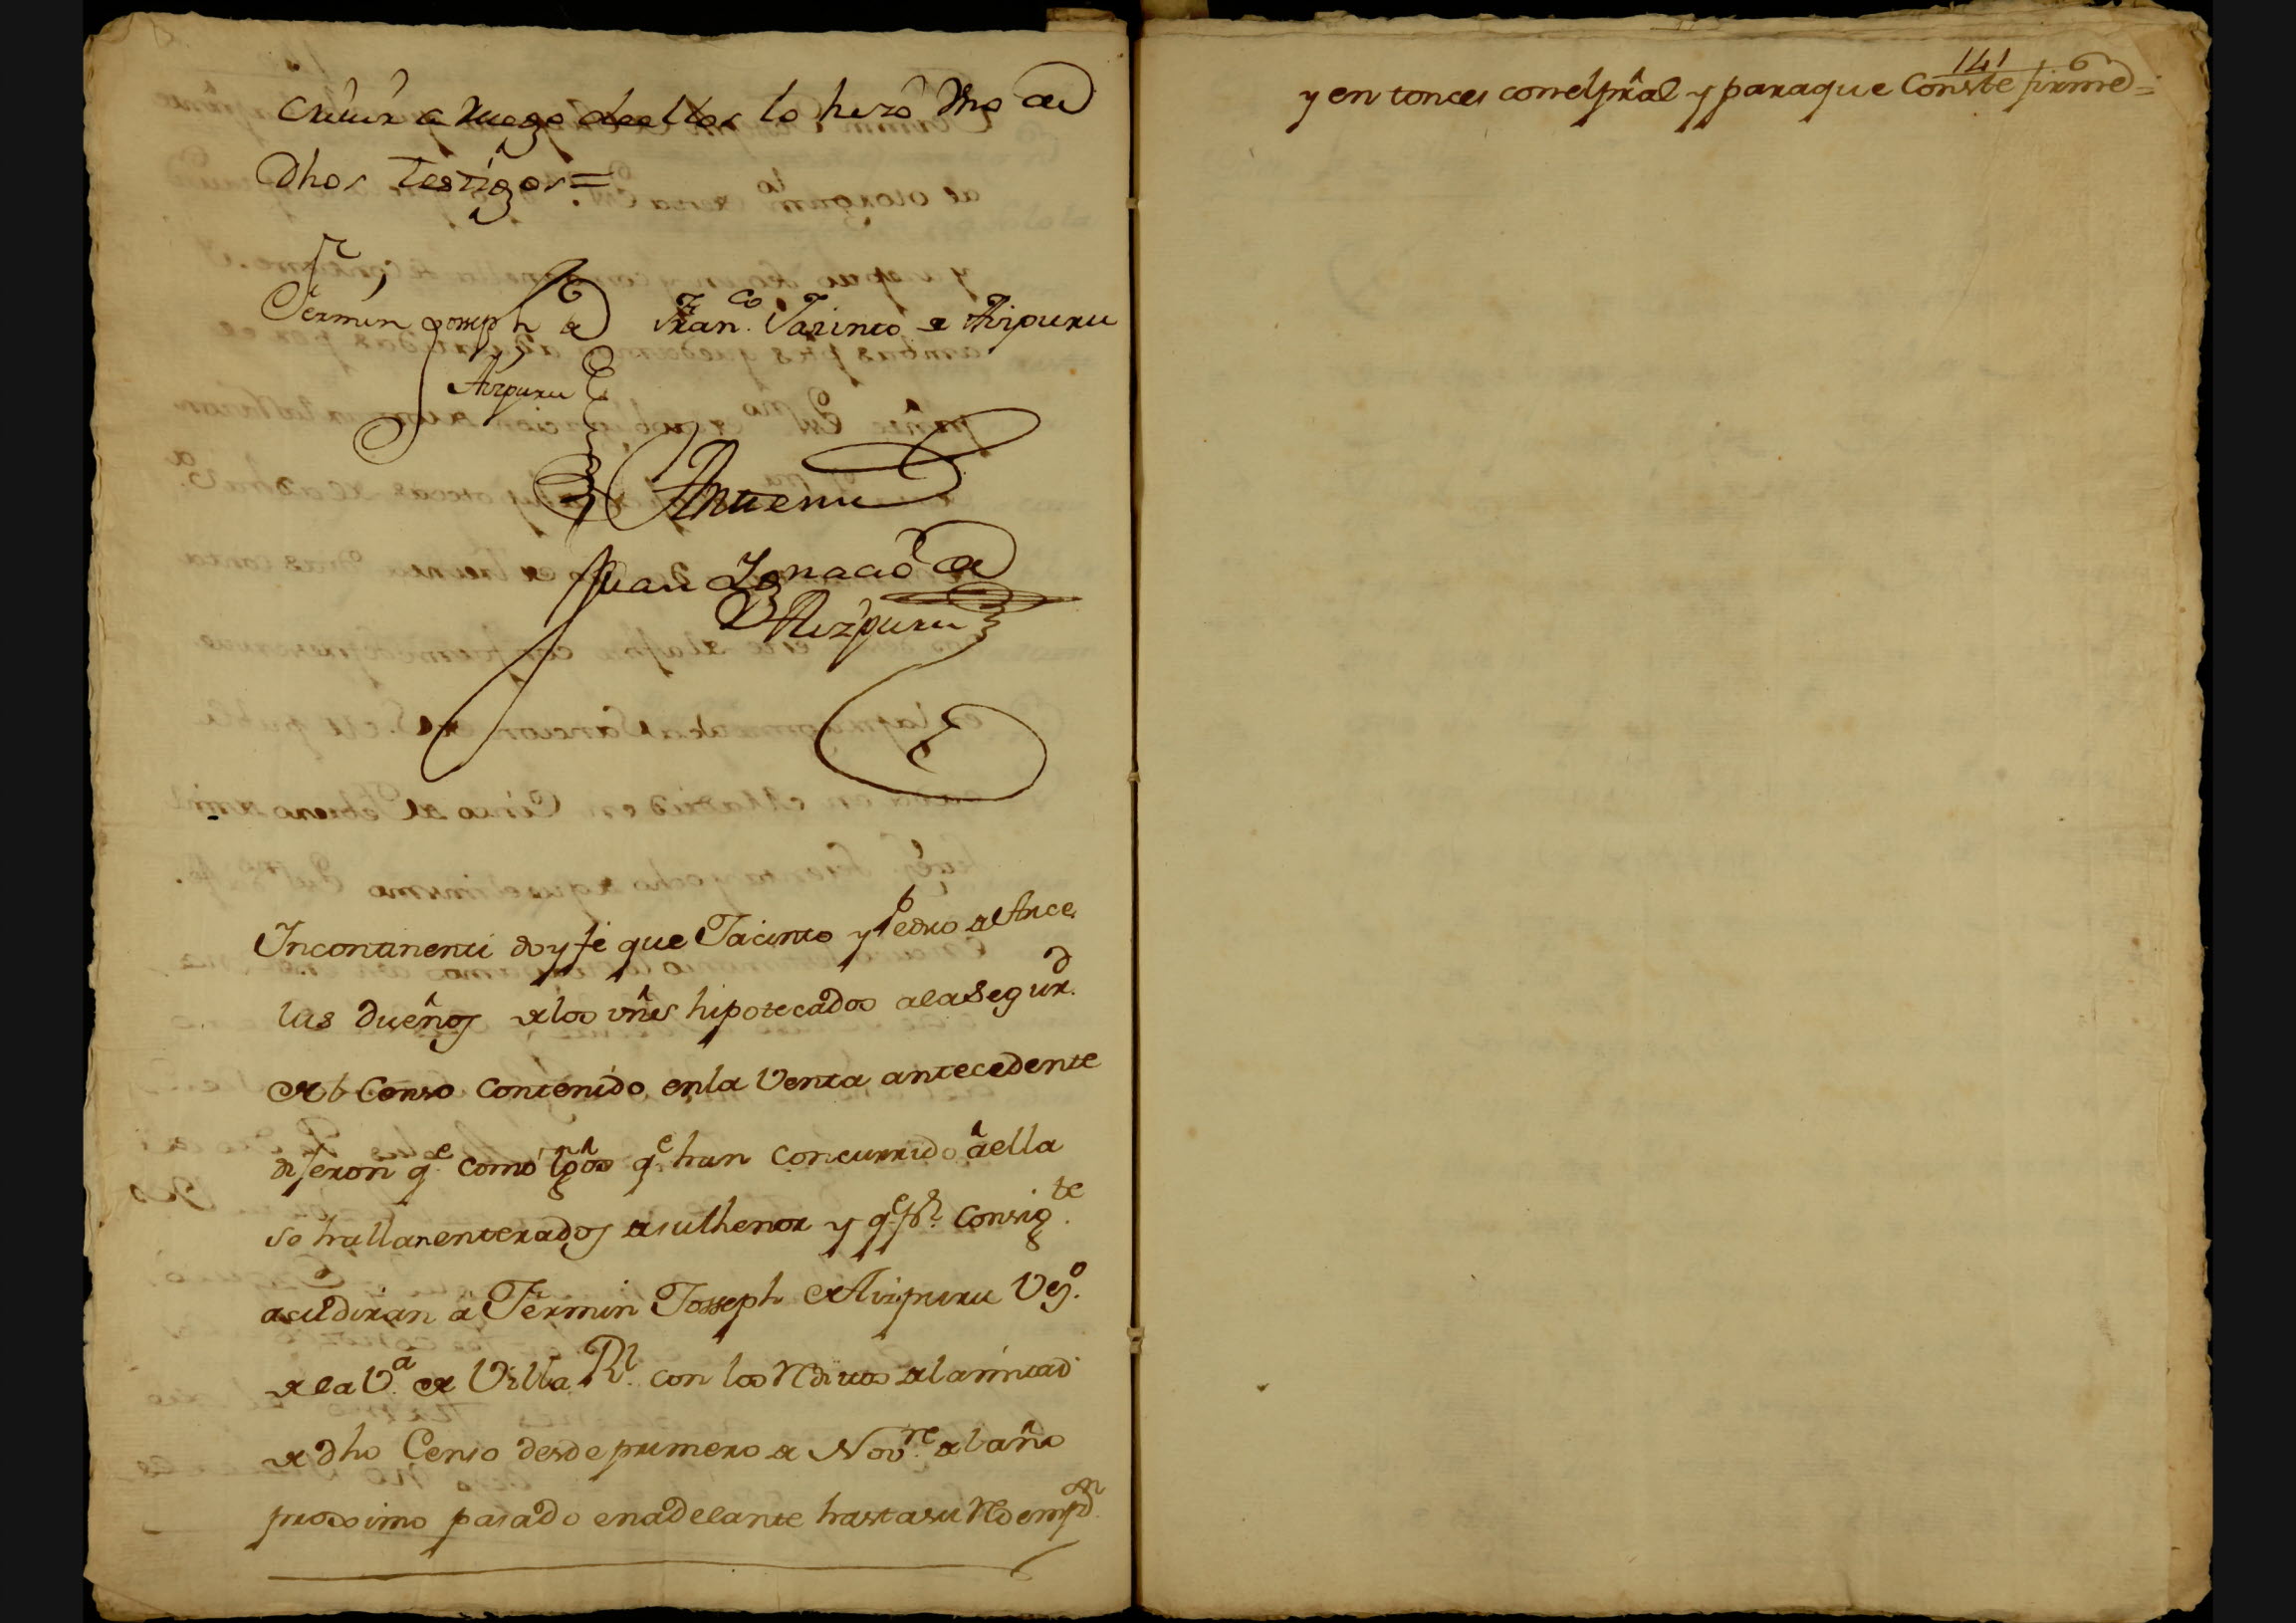 crivir a ruego de ellos lo hizo Vno de
dhos testigos =
Fermin Joseph de
Aizpuru
Fran.co Jazinto de Aizpuru
Antemi
Juan Ignacio de
Aizpuru
Incontinenti doy fe que Jacinto y Pedro de Arce
lus dueños de los vñes hipotecados a la segur.d
del Censo contenido en la Venta antecedente
dijeron q.e como tgõs q.e han concurrido â ella
se hallan enterados de su thenor y q.e p.r consig.te
acudiran a Fermin Joseph de Aizpuru Vez.o
de la V.a de Villa R.l con los reditos de la mitad
de dho Censo desde primero de Nov.re del año
proximo pasado en adelante hasta su redemp.on
141
y entonces con el prâl y para que Conste firmé =